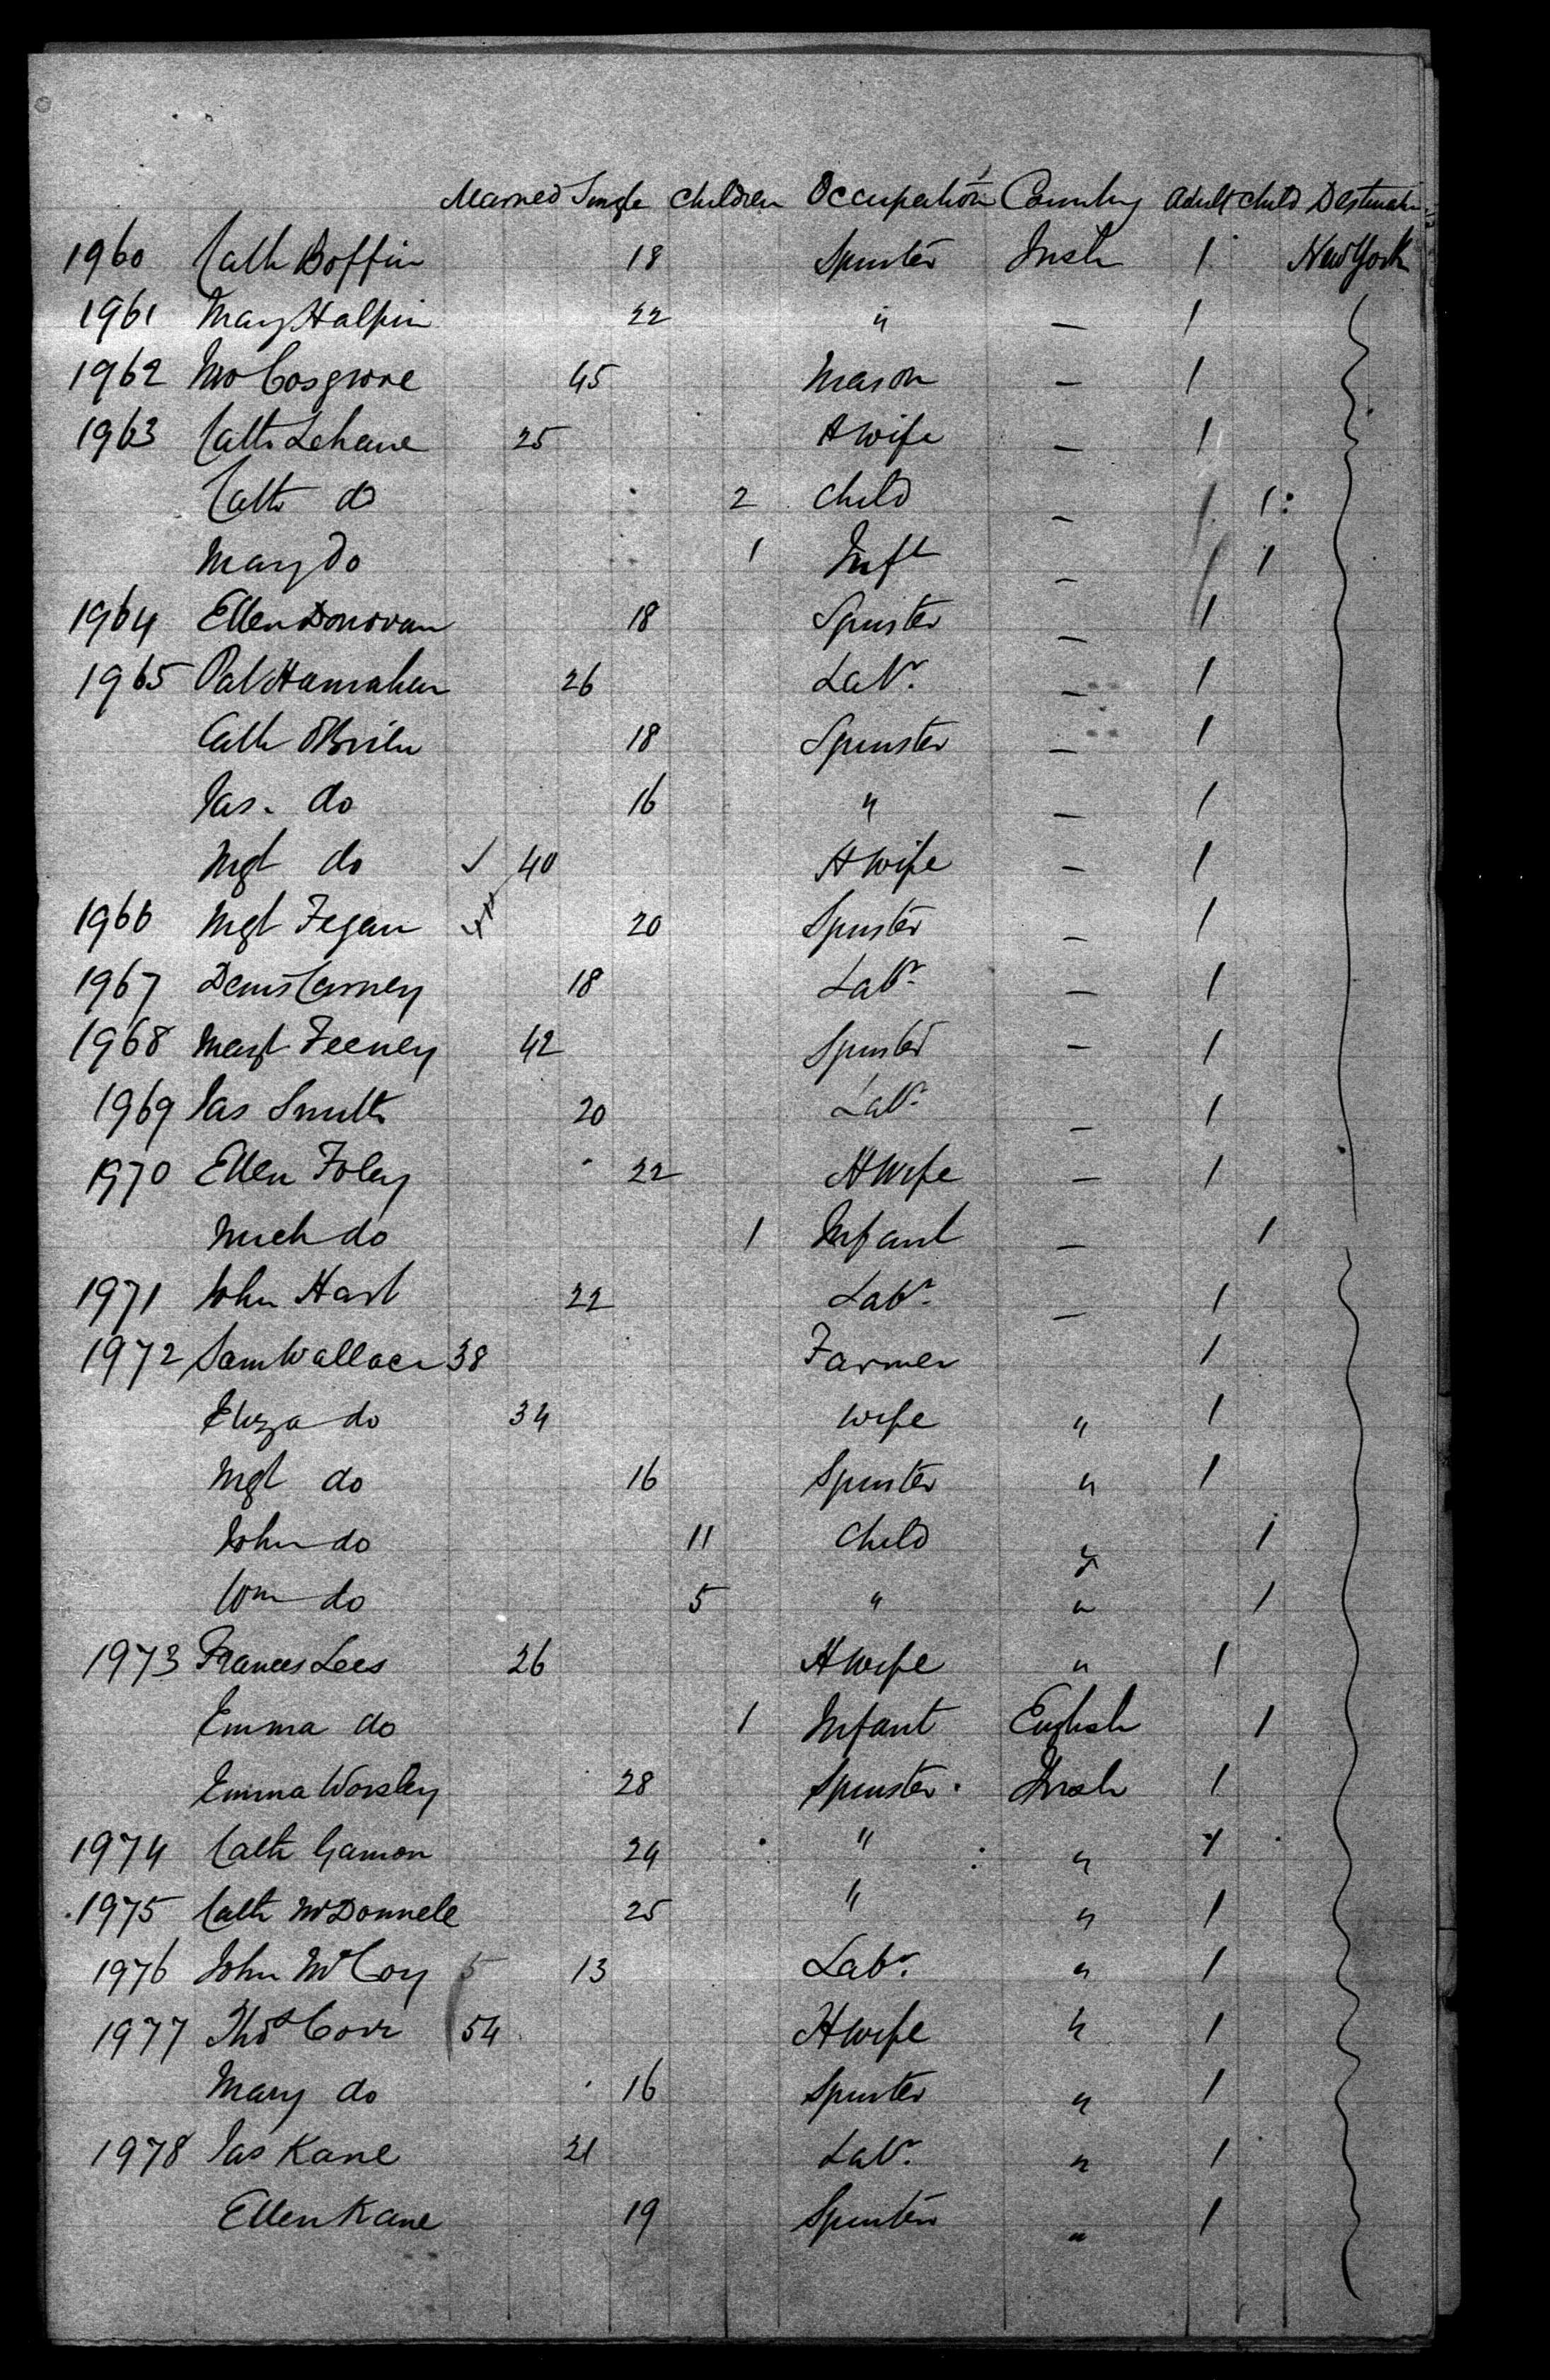 Married Single Children Occupation Country Adult Child Destination
1960 Cath Boffin 18 Spinster Irish 1 New York
1961 Mary Halpin 22 " — 1
1962 Cosgrove 45 Mason — 1
1963 Cath Lehane 25 H wife — 1
Cath do 2 Child — 1 1
Mary do 1 Inft — 1 1
1964 Ellen Donovan 18 Spinster — 1
1965 Pat Hanrahan 26 Labr. — 1
Cath O'Brien 18 Spinster — 1
Jas. do 16 " — 1
Mgt do ✓ 40 H wife — 1
1966 Mgt Fegan 20 Spinster — 1
1967 Denis Carney 18 Labr — 1
1968 Margt Feeney 42 Spinster — 1
1969 Jas Smith 20 Labr — 1
1970 Ellen Foley 22 H wife — 1
Mich do 1 Infant — 1
1971 John Hart 22 Labr — 1
1972 Sam Wallace 38 Farmer 1
Eliza do 34 wife " 1
Mgt do 16 Spinster " 1
John do 11 Child " 1
Wm do 5 " " 1
1973 Frances Lees 26 H wife " 1
Emma do 1 Infant English 1
Emma Worsley 28 Spinster Irish 1
1974 Cath Gamon 24 " " 1
1975 Cath McDonnell 25 " " 1
1976 John McCoy 5 13 Labr. " 1
1977 Thos Corr 54 H wife " 1
Mary do 16 Spinster " 1
1978 Jas Kane 21 Labr. " 1
Ellen Kane 19 Spinster " 1